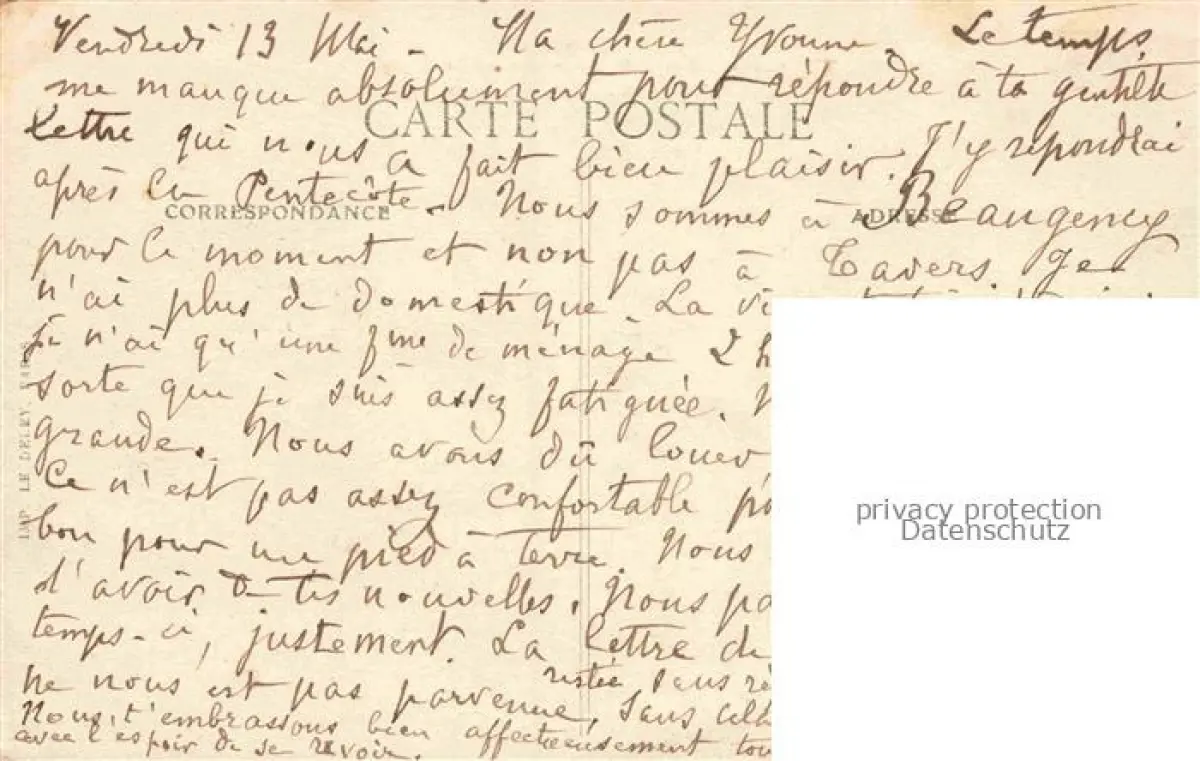 Vendredi 13 Mai - Ma chère Yvonne. Le temps
me manque absolument pour répondre à ta gentille
CARTE POSTALE
lettre qui nous a fait bien plaisir. J'y répondrai
après la Pentecôte. Nous sommes à Beaugency
CORRESPONDANCE
ADRESSE
pour le moment et non pas à Tavers. Je
n'ai plus de domestique. La
je n'ai qu'une fme de ménage 2 h
sorte que je suis assez fatiguée.
grande. Nous avons dû louer
Ce n'est pas assez confortable
bon pour un pied à terre. Nous
d'avoir de tes nouvelles. Nous
temps-ci, justement. La lettre de
restée sans
ne nous est pas parvenue, sans
Nous t'embrassons bien affectueusement
avec l'espoir de se revoir.
IMP LE DELEY, PARIS
privacy protection
Datenschutz